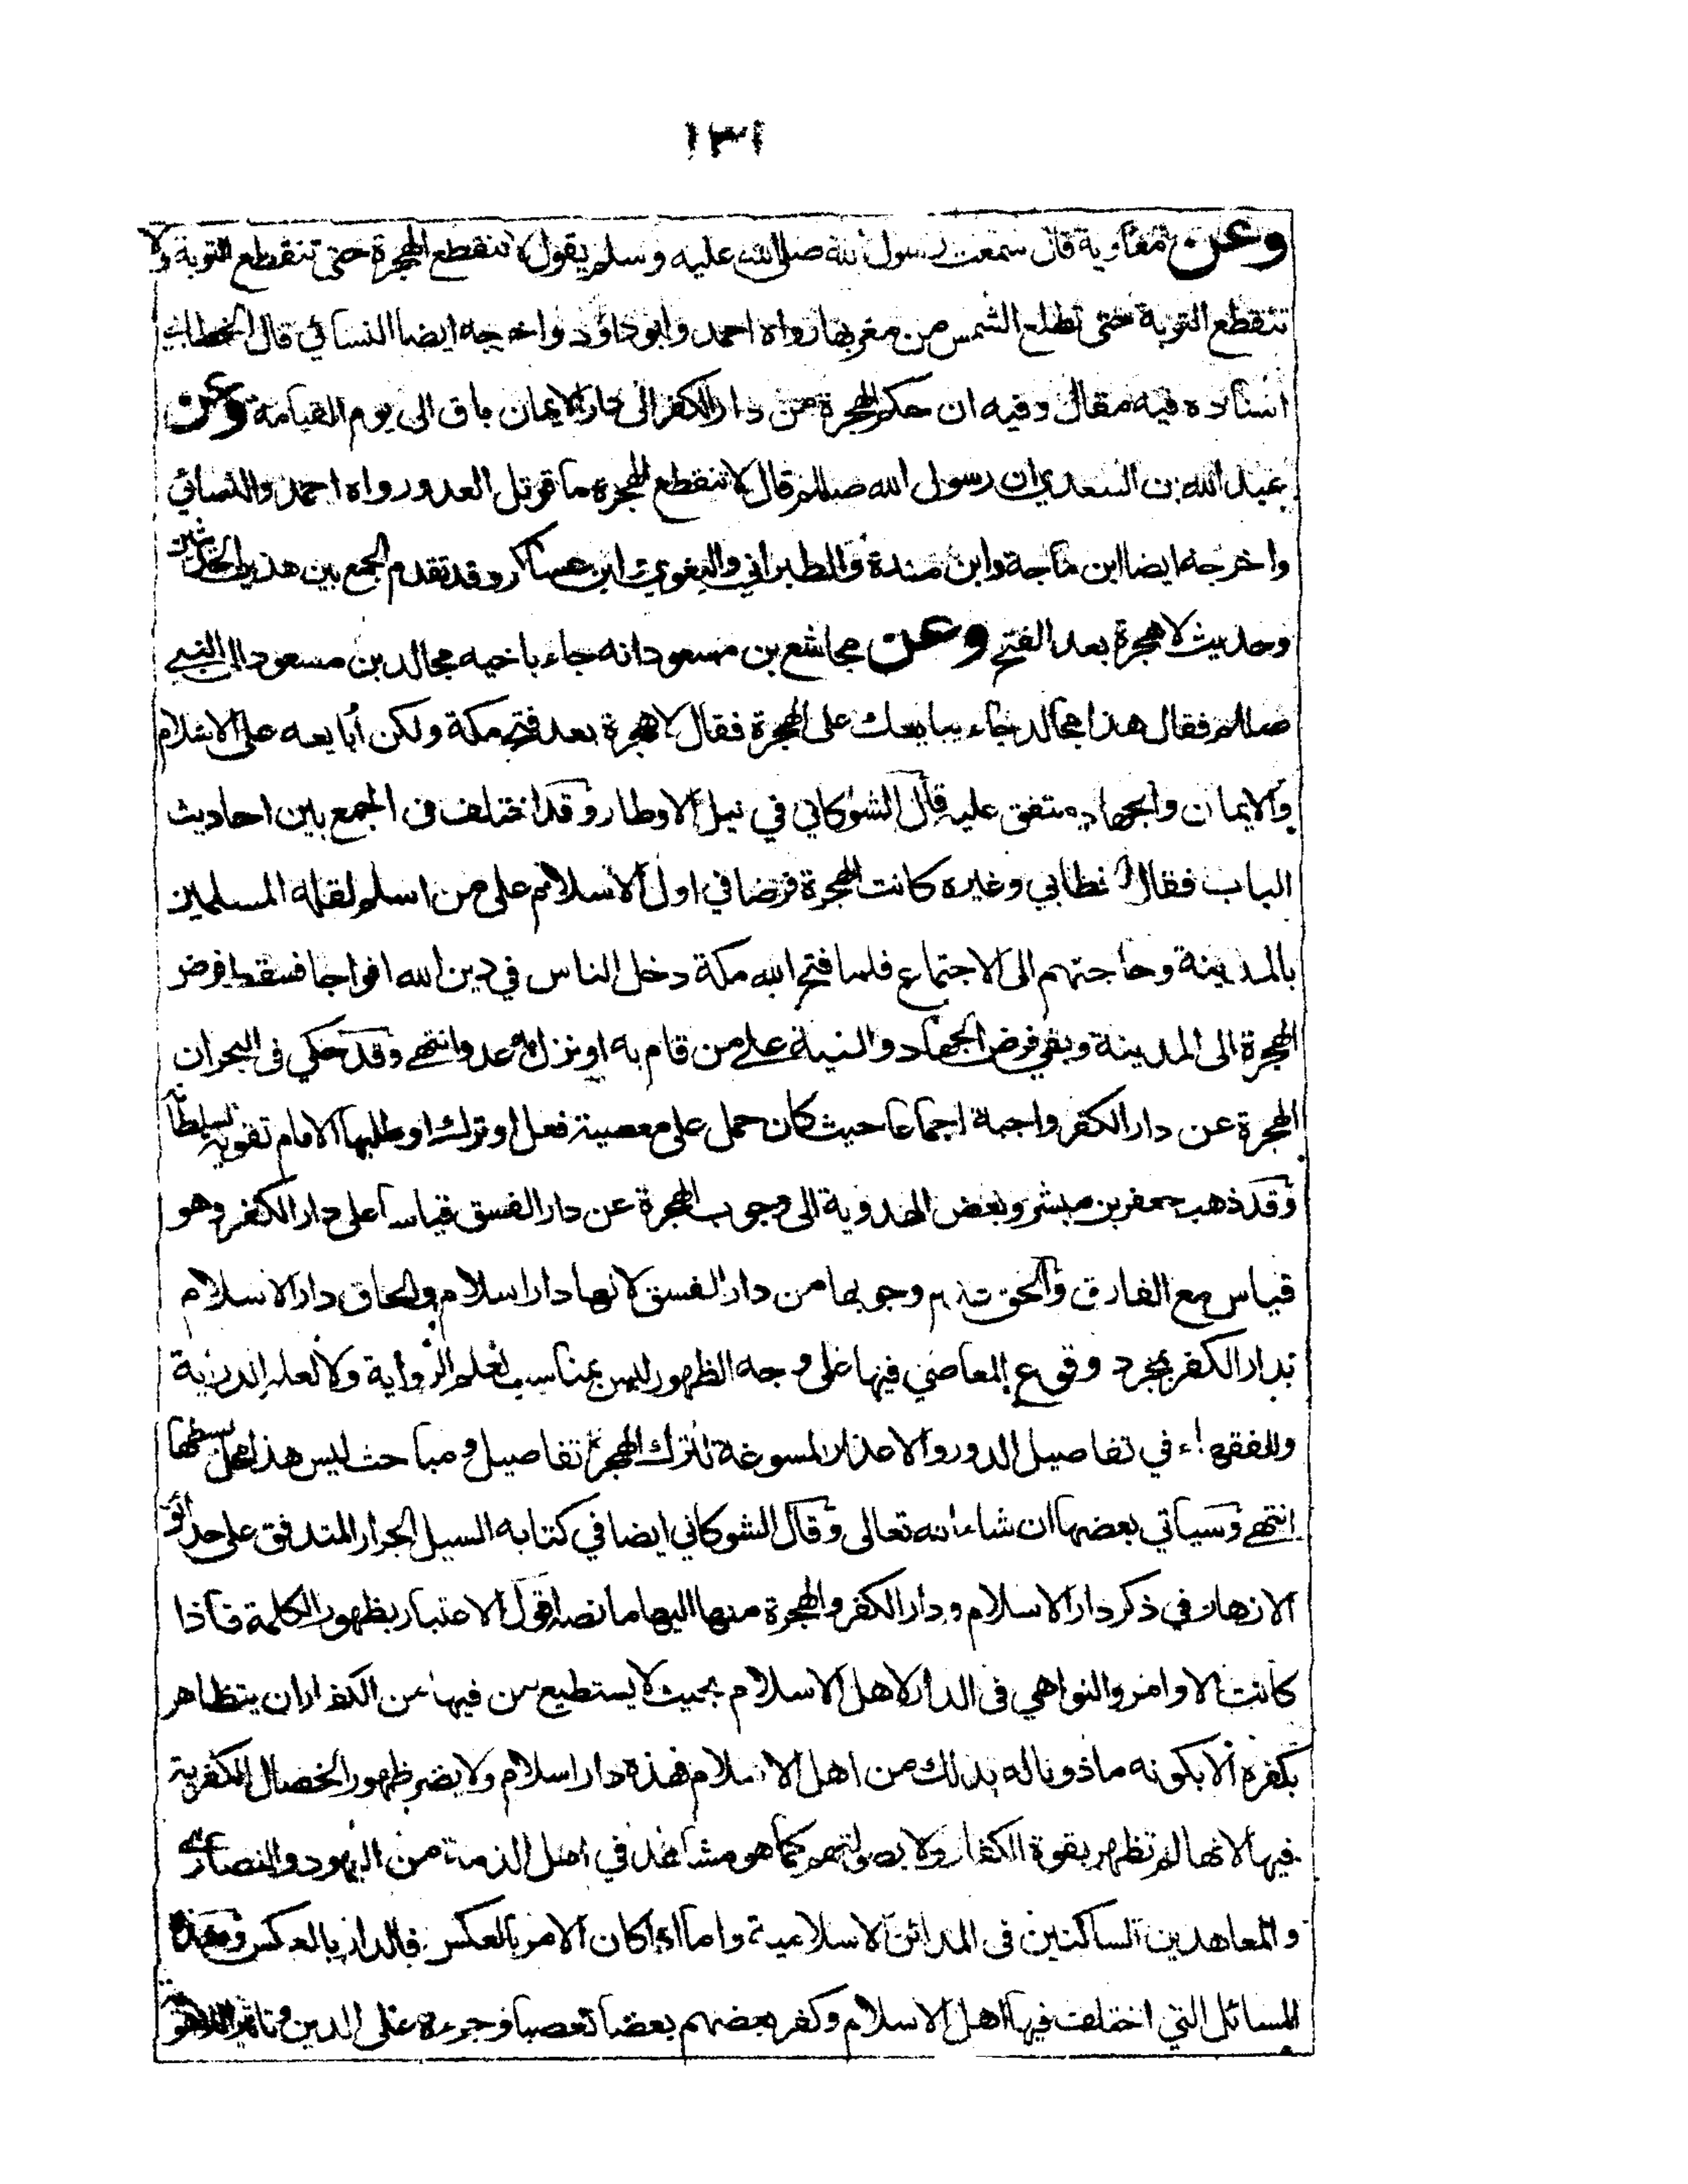 ١٣١
وعن معاوية قال سمعت رسول الله صلى الله عليه وسلم يقول لا تنقطع الهجرة حتى تنقطع التوبة ولا
تنقطع التوبة حتى تطلع الشمس من مغربها رواه احمد وابو داؤد واخرجه ايضا النسائي قال الخطابي
اسناده فيه مقال وفيه ان حكم الهجرة من دار الكفر الى دار الايمان باق الى يوم القيامة وعن
عبد الله بن السعدي ان رسول الله صللم قال لا تنقطع الهجرة ما قوتل العدو رواه احمد والنسائي
واخرجه ايضا ابن ماجة وابن مندة والطبراني والبغوي وابن عساكر وقد تقدم الجمع بين هذين الحديثين
وحديث لا هجرة بعد الفتح وعن مجاشع بن مسعود انه جاء باخيه مجالد بن مسعود الى النبي
صللم فقال هذا مجالد جاء يبايعك على الهجرة فقال لا هجرة بعد فتح مكة ولكن أبايعه على الاسلام
والايمان والجهاد متفق عليه قال الشوكاني في نيل الاوطار وقد اختلف في الجمع بين احاديث
الباب فقال الخطابي وغيره كانت الهجرة فرضا في اول الاسلام على من اسلم لقلة المسلمين
بالمدينة وحاجتهم الى الاجتماع فلما فتح الله مكة دخل الناس في دين الله افواجا فسقط فرض
الهجرة الى المدينة وبقي فرض الجهاد والنية على من قام به او نزل به عدو انتهى وقد حكي في البحران
الهجرة عن دار الكفر واجبة اجماعا حيث كان حمل على معصية فعل او ترك او طلبها الامام تقوية لسلطانه
وقد ذهب جعفر بن مبشر وبعض الهدوية الى وجوب الهجرة عن دار الفسق قياسا على دار الكفر وهو
قياس مع الفارق والحق عدم وجوبها من دار الفسق لانها دار اسلام والحاق دار الاسلام
بدار الكفر بمجرد وقوع المعاصي فيها على وجه الظهور ليس بمناسب لعلم الرواية ولا لعلم الدراية
وللفقهاء في تفاصيل الدور والاعذار المسوغة لترك الهجرة تفاصيل ومباحث ليس هذا محل بسطها
انتهى وسياتي بعضها ان شاء الله تعالى وقال الشوكاني ايضا في كتابه السيل الجرار المتدفق على حدائق
الازهار في ذكر دار الاسلام ودار الكفر والهجرة منها اليها ما نصه اقول الاعتبار بظهور الكلمة فاذا
كانت الاوامر والنواهي في الدار لاهل الاسلام بحيث لا يستطيع من فيها من الكفار ان يتظاهر
بكفره الا بكونه ماذونا له بذلك من اهل الاسلام فهذه دار اسلام ولا يضر ظهور الخصال الكفرية
فيها لانها لم تظهر بقوة الكفار ولا بصولتهم كما هو مشاهد في اهل الذمة من اليهود والنصارى
والمعاهدين الساكنين في المدائن الاسلامية واما اذا كان الامر بالعكس فالدار بالعكس وهذه
المسائل التي اختلف فيها اهل الاسلام وكفر بعضهم بعضا تعصبا وجرءة على الدين